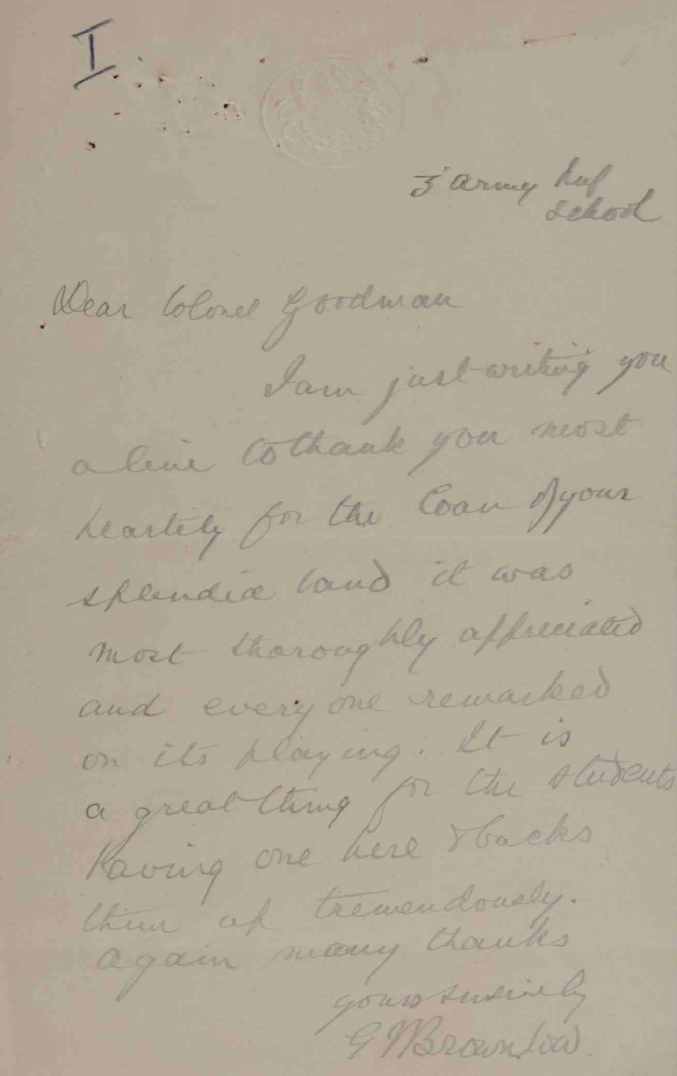 I
3 Army Inf
School
Dear Colonel Goodman
I am just writing you
a line to thank you most
heartily for the loan of your
splendid band it was
most thoroughly appreciated
and every one remarked
on its playing. It is
a great thing for the students
having one here & bucks
them up tremendously.
again many thanks
yours sincerely
G Brownlow